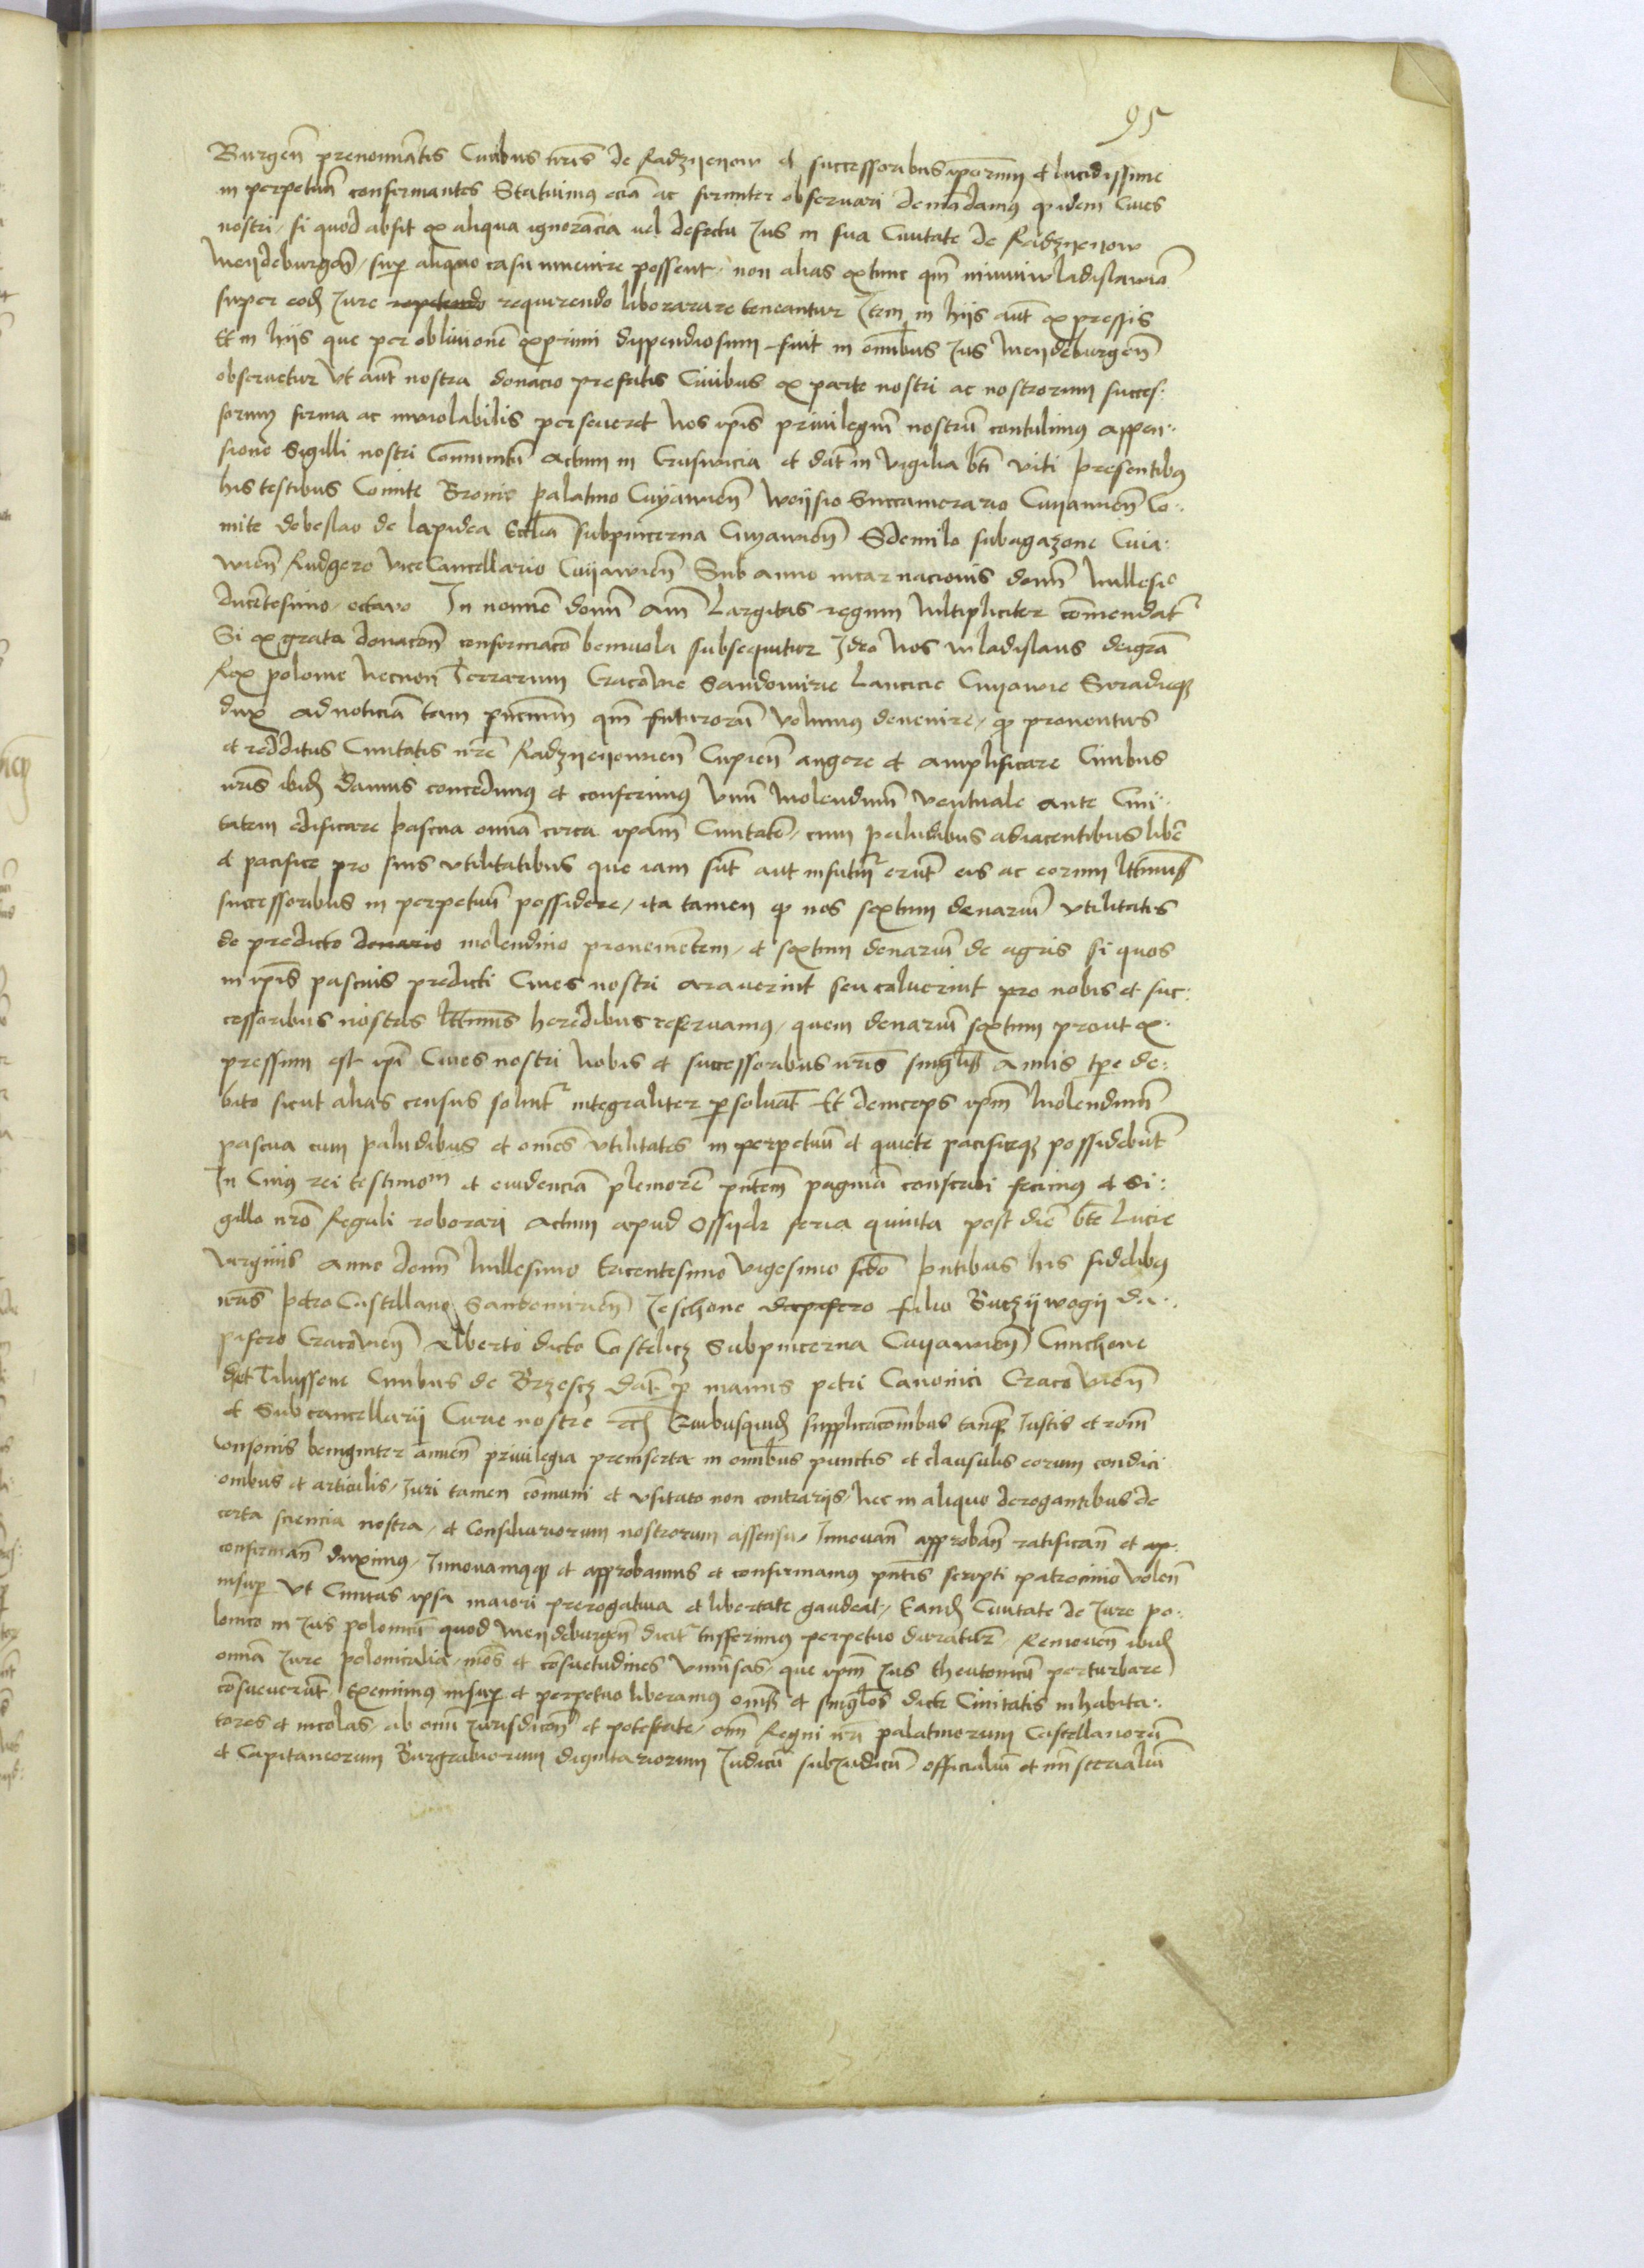 95
Burgeñ prenominatis Civibus nris̄ de Radzyeyow et successoribus ipōrum et lucidissime
in perpetuū confirmantes Statuimus eciā ac firmiter observari demādamus q̄ idem Cives
nostri / si quod absit ex aliqua ignorācia vel defectu Jus in sua Civitate de Radzyeyow
Meydeburgeñ / sup̱ aliquo casu invenire possent / non alias extunc qm̄ in iuniwladislaviā
super eod̄ Jure repetendo requirendo liborarare teneantur Item in hiis aūt expressis
Et in hiis que per oblivionē exprimi dispendiosum fuit in om̄ibus Jus Meydeburgeñ
observetur Ut aūt nostra donacio prefatis Civibus ex parte nostri ac nostrorum succes:
sorum firma ac inviolabilis perseveret Nos ip̄is privilegiū nostrū contulimus appen:
sione Sigilli nostri Com̄unitū Actum in Crusvicia et dat̄ in vigilia bt̄i viti presentibus
his testibus Comite Bronis palatino Cuyavieñ Woysio Succamerario Cuyavieñ Co:
mite dobeslao de lapidea Eccl̄ia subpincerna Cuyavieñ Sdemilo subagazone Cuia:
vieñ Rudgero viceCancellario Cuyavieñ Sub anno incarnacionis domī Millesīo
ducētesimo / octavo In nomīe domī Am̄ Largitas regum Multipliciter cōmendat̄
Si ex grata donacōn̄ confirmacō benivola subsequitur Ideo Nos Wladislaus deigrā
Rex polonie Necnon Terrarum Cracōvie Sandomirie Lancicie Cuyavie Siradieq̄
dux Ad noticiā tam pn̄cium qm̄ futurorū volumus devenire / q̄ proventus
et redditus Civitatis nrē Radzyeyowieñ Cupieñ augere et amplificare Civibus
nris̄ ibid̄ damus concedimus et conferimus Unū Molendinū ventuale ante Civi:
tatem edificare pascua om̄ia circa ip̄am Civitatē / cum paludibus adiacentibus libē
et pacifice pro suis utilitatibus que iam sūt aut in futur̄ erūt eis ac eorum ltt̄imis
successoribus in perpetuū possidere / ita tamen q̄ nos sextum denariū utilitatis
de predicto denario molendino provenientem / et sextum denariū de agris si quos
in ip̄is pascuis predicti Cives nostri araverint seu coluerint pro nobis et suc:
cessoribus nostris ltt̄imis heredibus reservamus / quem denariū sextum prout ex:
pressum est ip̄i Cives nostri Nobis et successoribus nris̄ singl̄is Annis tp̄e de:
bito sicut alias census solūt̄ integraliter p̱solvāt Et deinceps ip̄m Molendinū
pascua cum paludibus et om̄es utilitates in perpetuū et quiete pacificeq̄ possidebūt
In Cuius rei testimom̄ et evidenciā pleniorē pn̄tem paginā conscribi fecimus et Si:
gillo nrō Reguli roborari Actum apud Ossyek feria quinta post diē bt̄e Lucie
virginis Anno domī Millesimo Tricentesimo vigesimo scd̄o pn̄tibus his fidelibus
nris̄ petro Castellano Sandomirieñ Jeschone dapifero filio Budzywogii da:
pifero Cracovieñ Alberto dicto Costelicz Subpincerna Cuyavieñ Cunchone
et Tilussone Civibus de Brzescz dat̄ p̱ manus petri Canonici Cracovieñ
et Subcancellarii Curie nostre etc̄ Quibusquid̄ supplicacōnibus tanq̄ Justis et rōni
consonis benigniter annuēn privilegia preinserta in om̄ibus punctis et clausulis eorum condici
onibus et articulis / Juri tamen cōmuni et usitato non contrariis / Nec in aliquo derogantibus de
certa sciencia nostra / et Consiliariorum nostrorum assensu / Innovan̄ approban̄ ratifican̄ et ap:
confirman̄ duximus / Innovamusq̄ et approbamus et confirmamus pn̄tis scripti patrocinio Volen̄
insup̱ Ut Civitas ipsa maiori prerogativa et libertate gaudeat / Eand̄ Civitatē de Jure po:
lonico in Jus polonicū quod Meydeburgeñ dicit̄ trāsferimus perpetuo duratur̄ / Removen̄ ibid̄
om̄ia Jura polonicalia / mōs et cōsuetudines univ̄sas / que ip̄m Jus theutonicū perturbare
cōsueverūt Eximimus insup̱ et perpetuo liberamus om̄s et singl̄os dicte Civitatis inhabita:
tores et incolas / ab om̄i Jurisdicōn̄ et potestate / om̄i Regni nrī palatinorum Castellanorū
et Capitaneorum Burgrabiorum dignitariorum Judicū subJudicū / officialiū et mīsterialiū